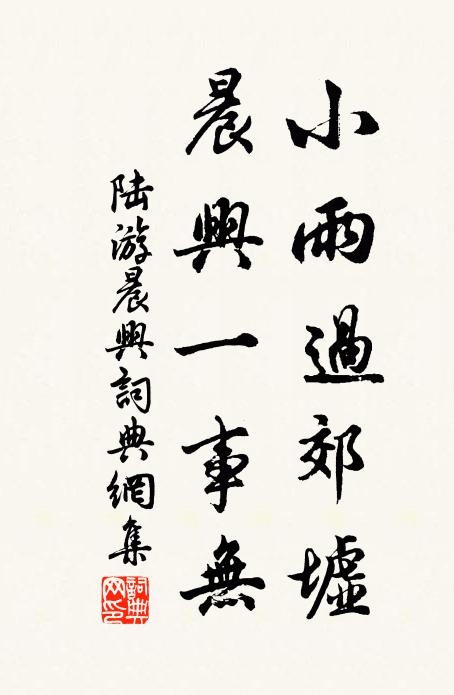 小雨過郊墟
晨興一事無
陸游晨興詞典網集
詞典網印